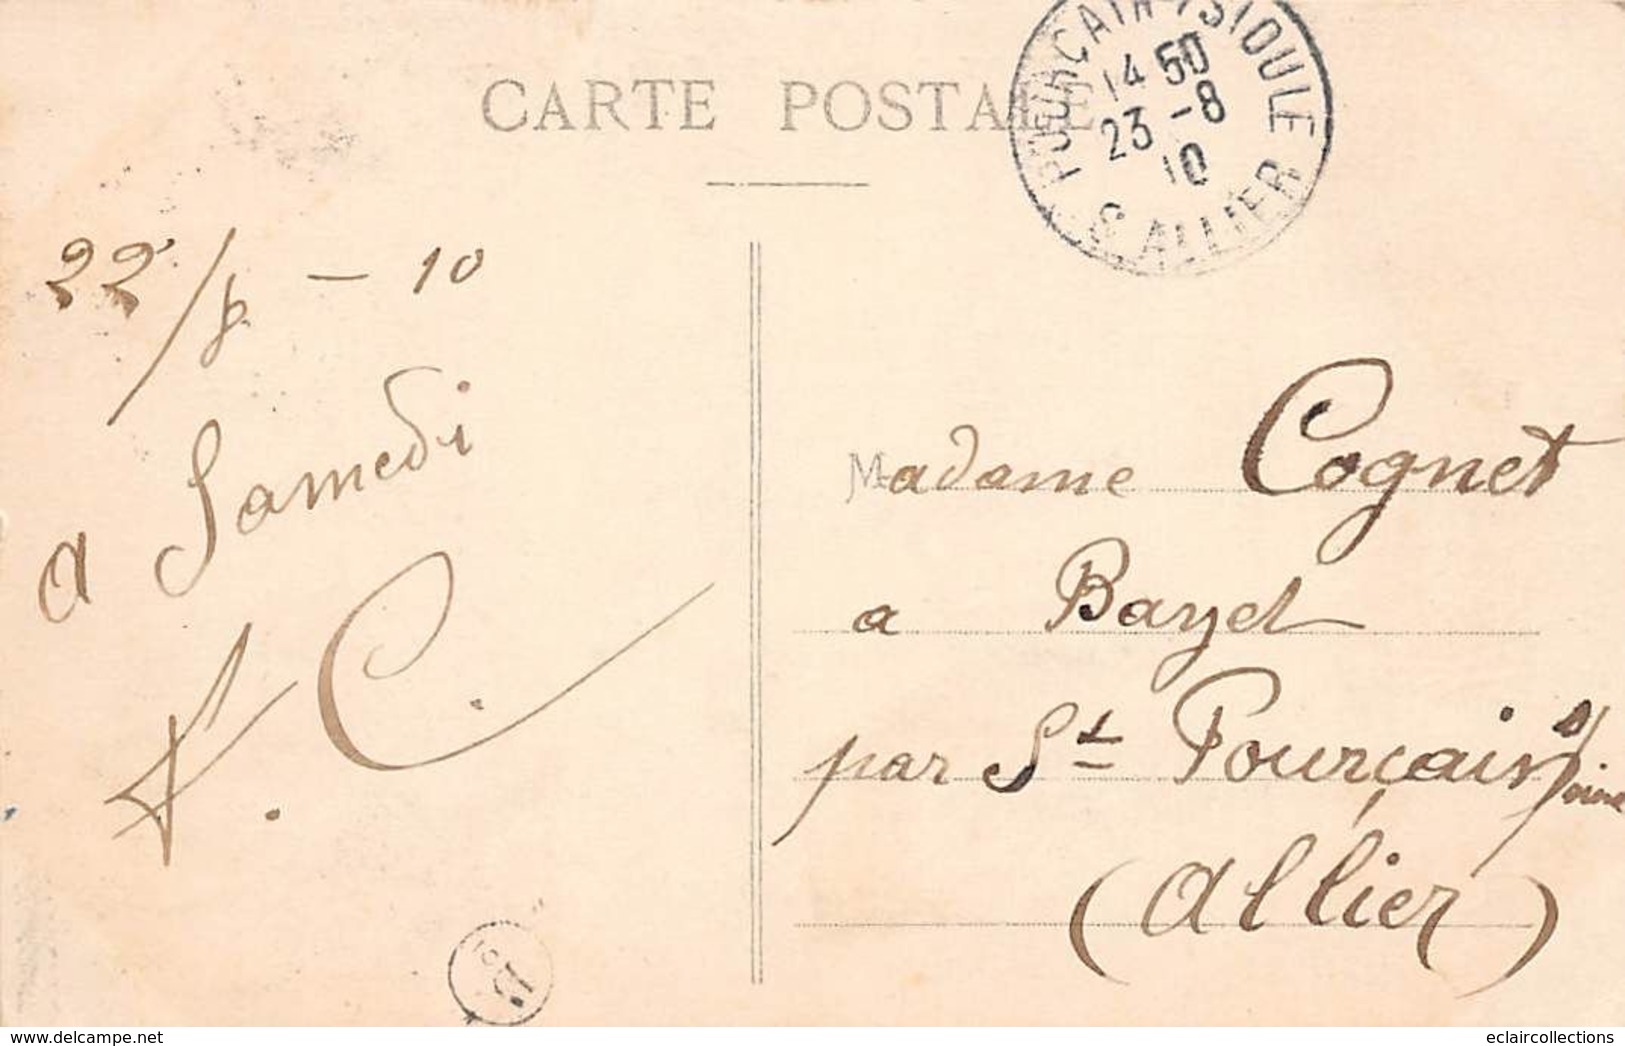 CARTE POSTALE
POURÇAIN-S-SIOULE
14 50
23 -8
10
ALLIER
22/8 - 10
a Samedi
C.
Madame Cognet
a Bayet
par St Pourçain s/
(Allier)
eclaircollections